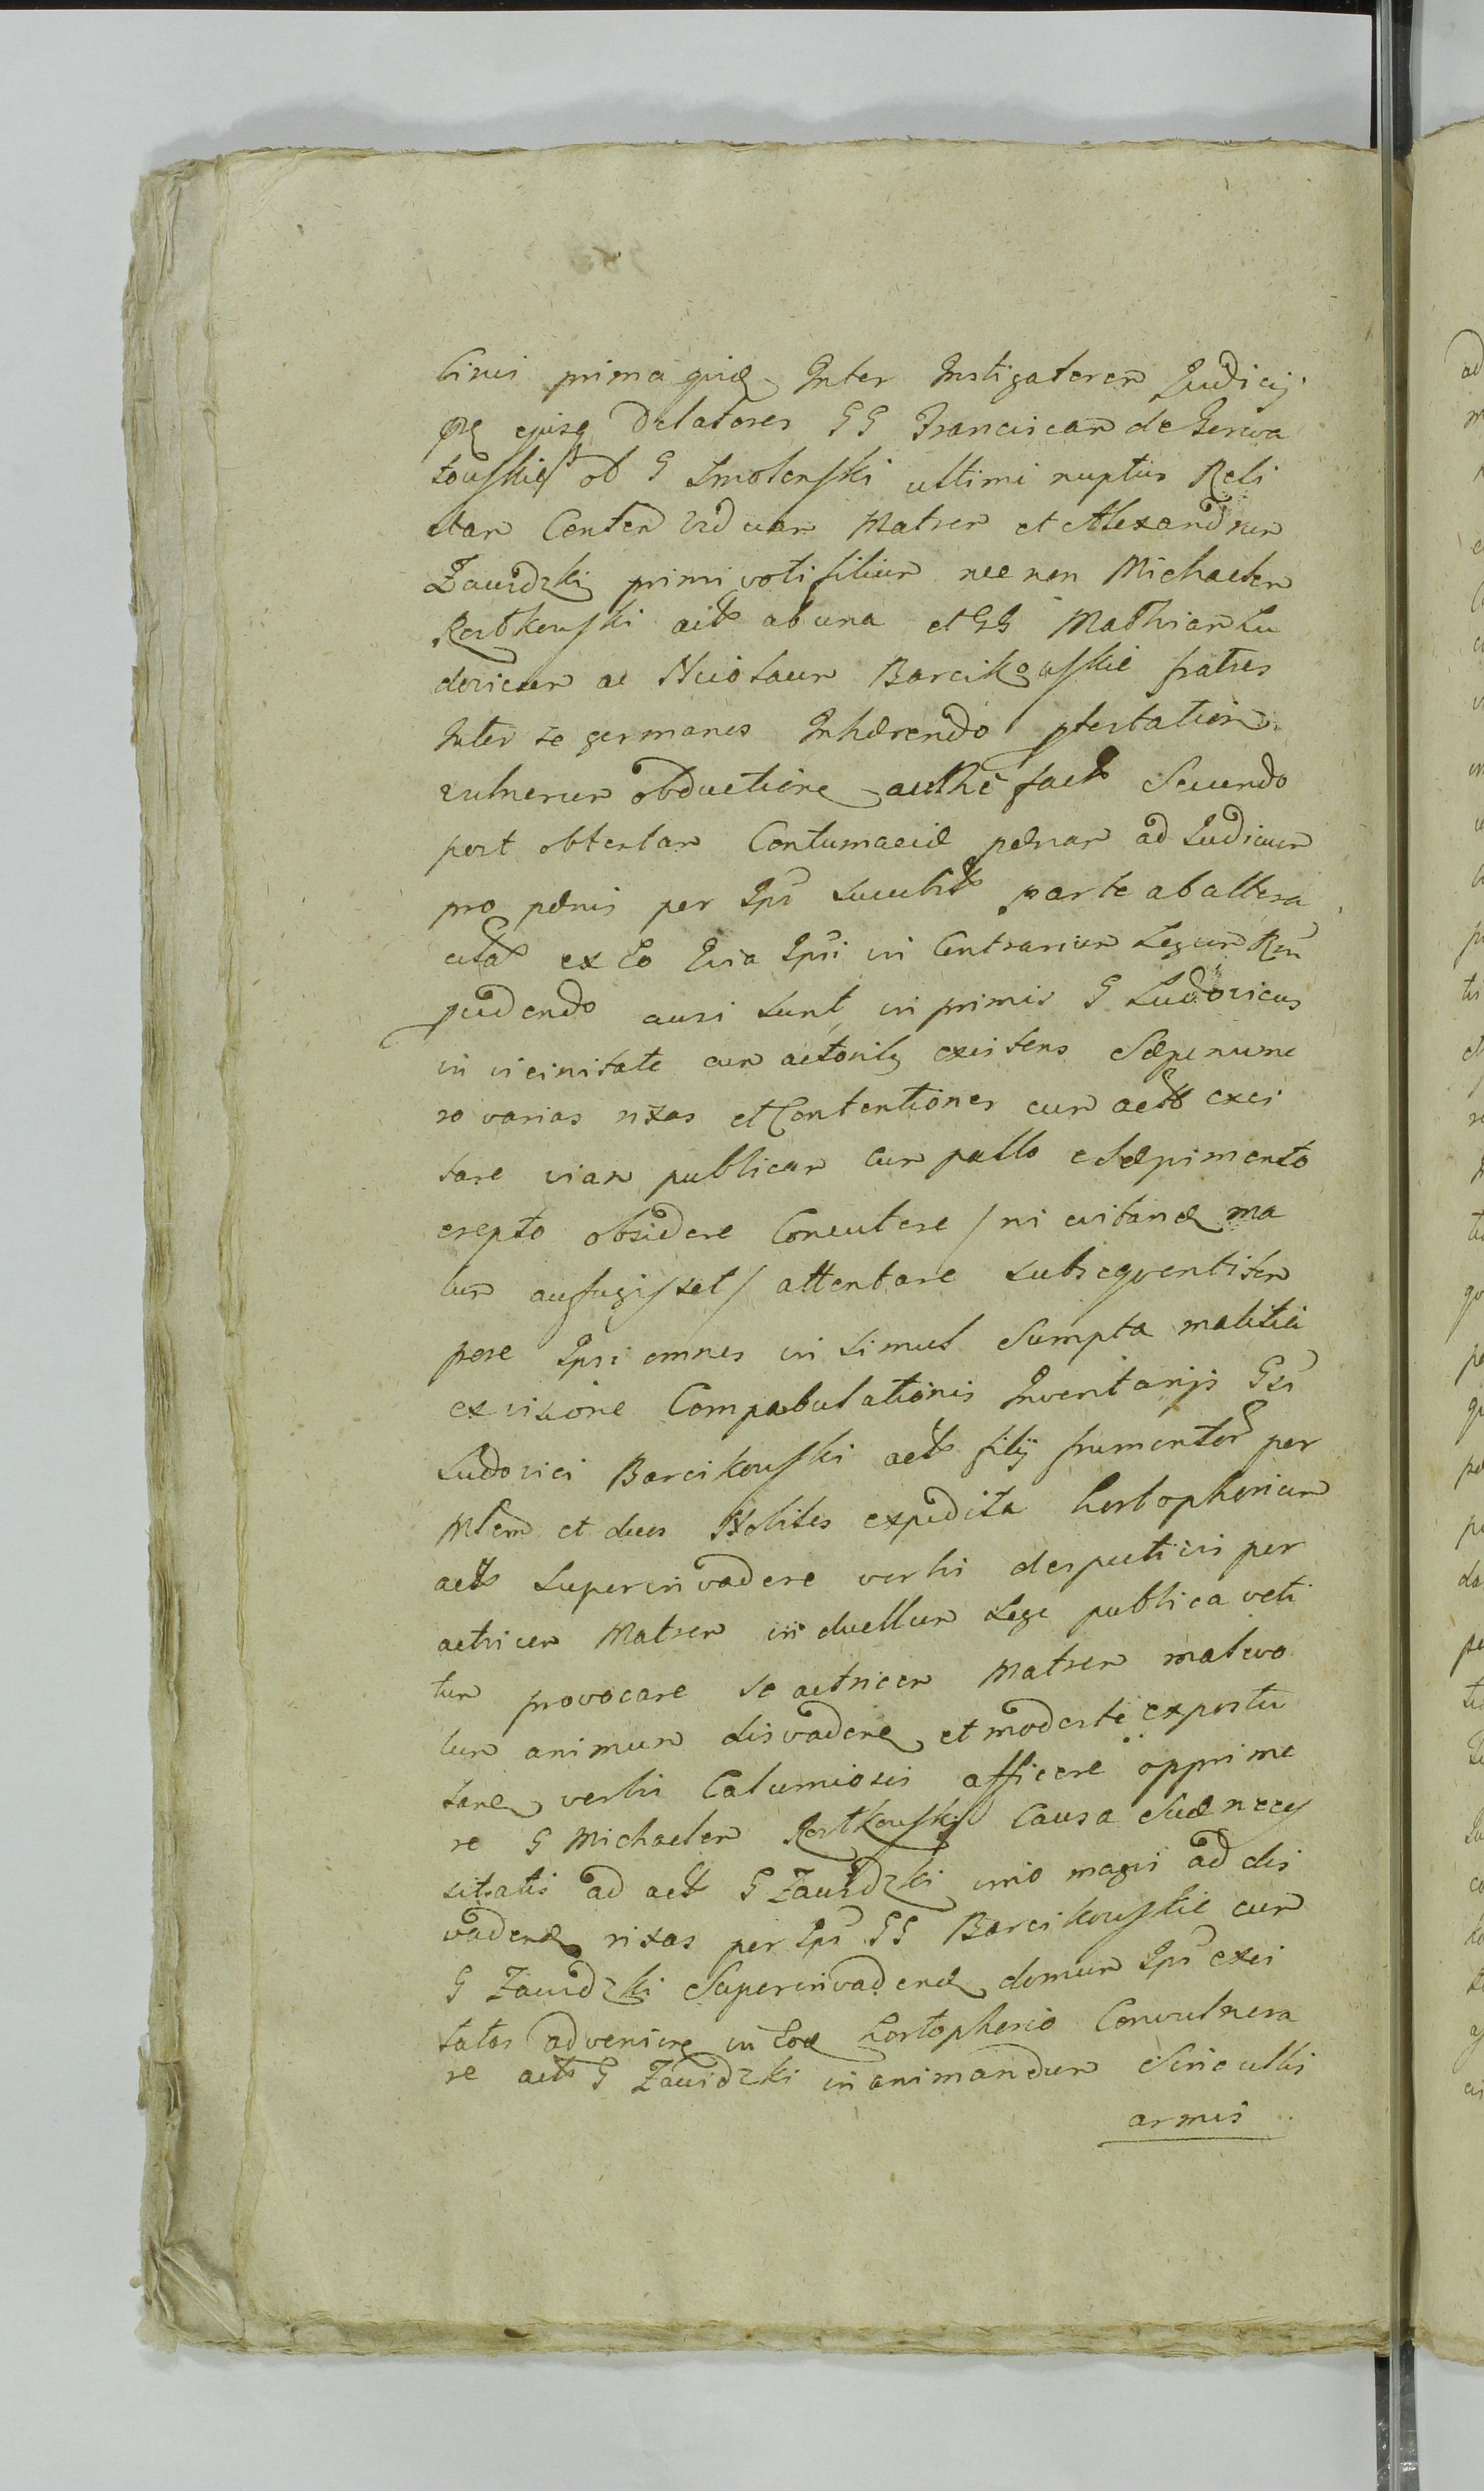 tinis prima quidē Inter Instigatorem Judicij
pnt ejusq Delatores GG Franciscam de Gerwa
towskie ol G Smolenski ultimi nuptus Reli
ctam Conten viduam Matrem et Alexandrum
Zawidzki primi voti filium nec non Michaelem
Rostkowski act ab una et GG Mathiam Lu
dovicum ac Nicolaum Barcikowskie fratres
Inter se germanos Inhærendo ptestationi
vulnerum obductione authē fact Secundo
post obtentam Contumaciæ pænam ad Judicium
pro pænis per Ips succubit parte ab altera
citat ex Eo Quia Ipsi in Contrarium Legum Rni
pudendo ausi sunt in primis G Ludovicus
in vicinitate cum actorib existens Sæpenume
ro varias rixas et Contentiones cum act exci
tare viam publicam cum pallo e Sæpimento
erepto obsidere Concutere /ni evitand ma
lum aufugisset/ attentare subsequenti tem
pore Ipsi omnes in simul Sumpta malitia
ex visione Compabulationis Inventarijs Gsi
Ludovici Barcikowski act filij frumentor per
Mlem et duos Nobiles expedita hortopherium
act superinvadere verbis despectivis per
actricem Matrem in duellum Lege publica veti
tum provocare se actricem Matrem malevo
lum animum disvadere et modeste expostu
lare verbis Calumiosis afficere opprime
re G Michaelem Rostkowski Causa Suæ neces
sitatis ad act G Zawidzki imo magis ad dis
vadend rixas per Ips GG Barcikowskie cum
G Zawidzki Superinvadend domum Ips exci
tatas advenien in Eod hortopherio Convulnera
re act G Zawidzki in animandum Sine ullis
armis